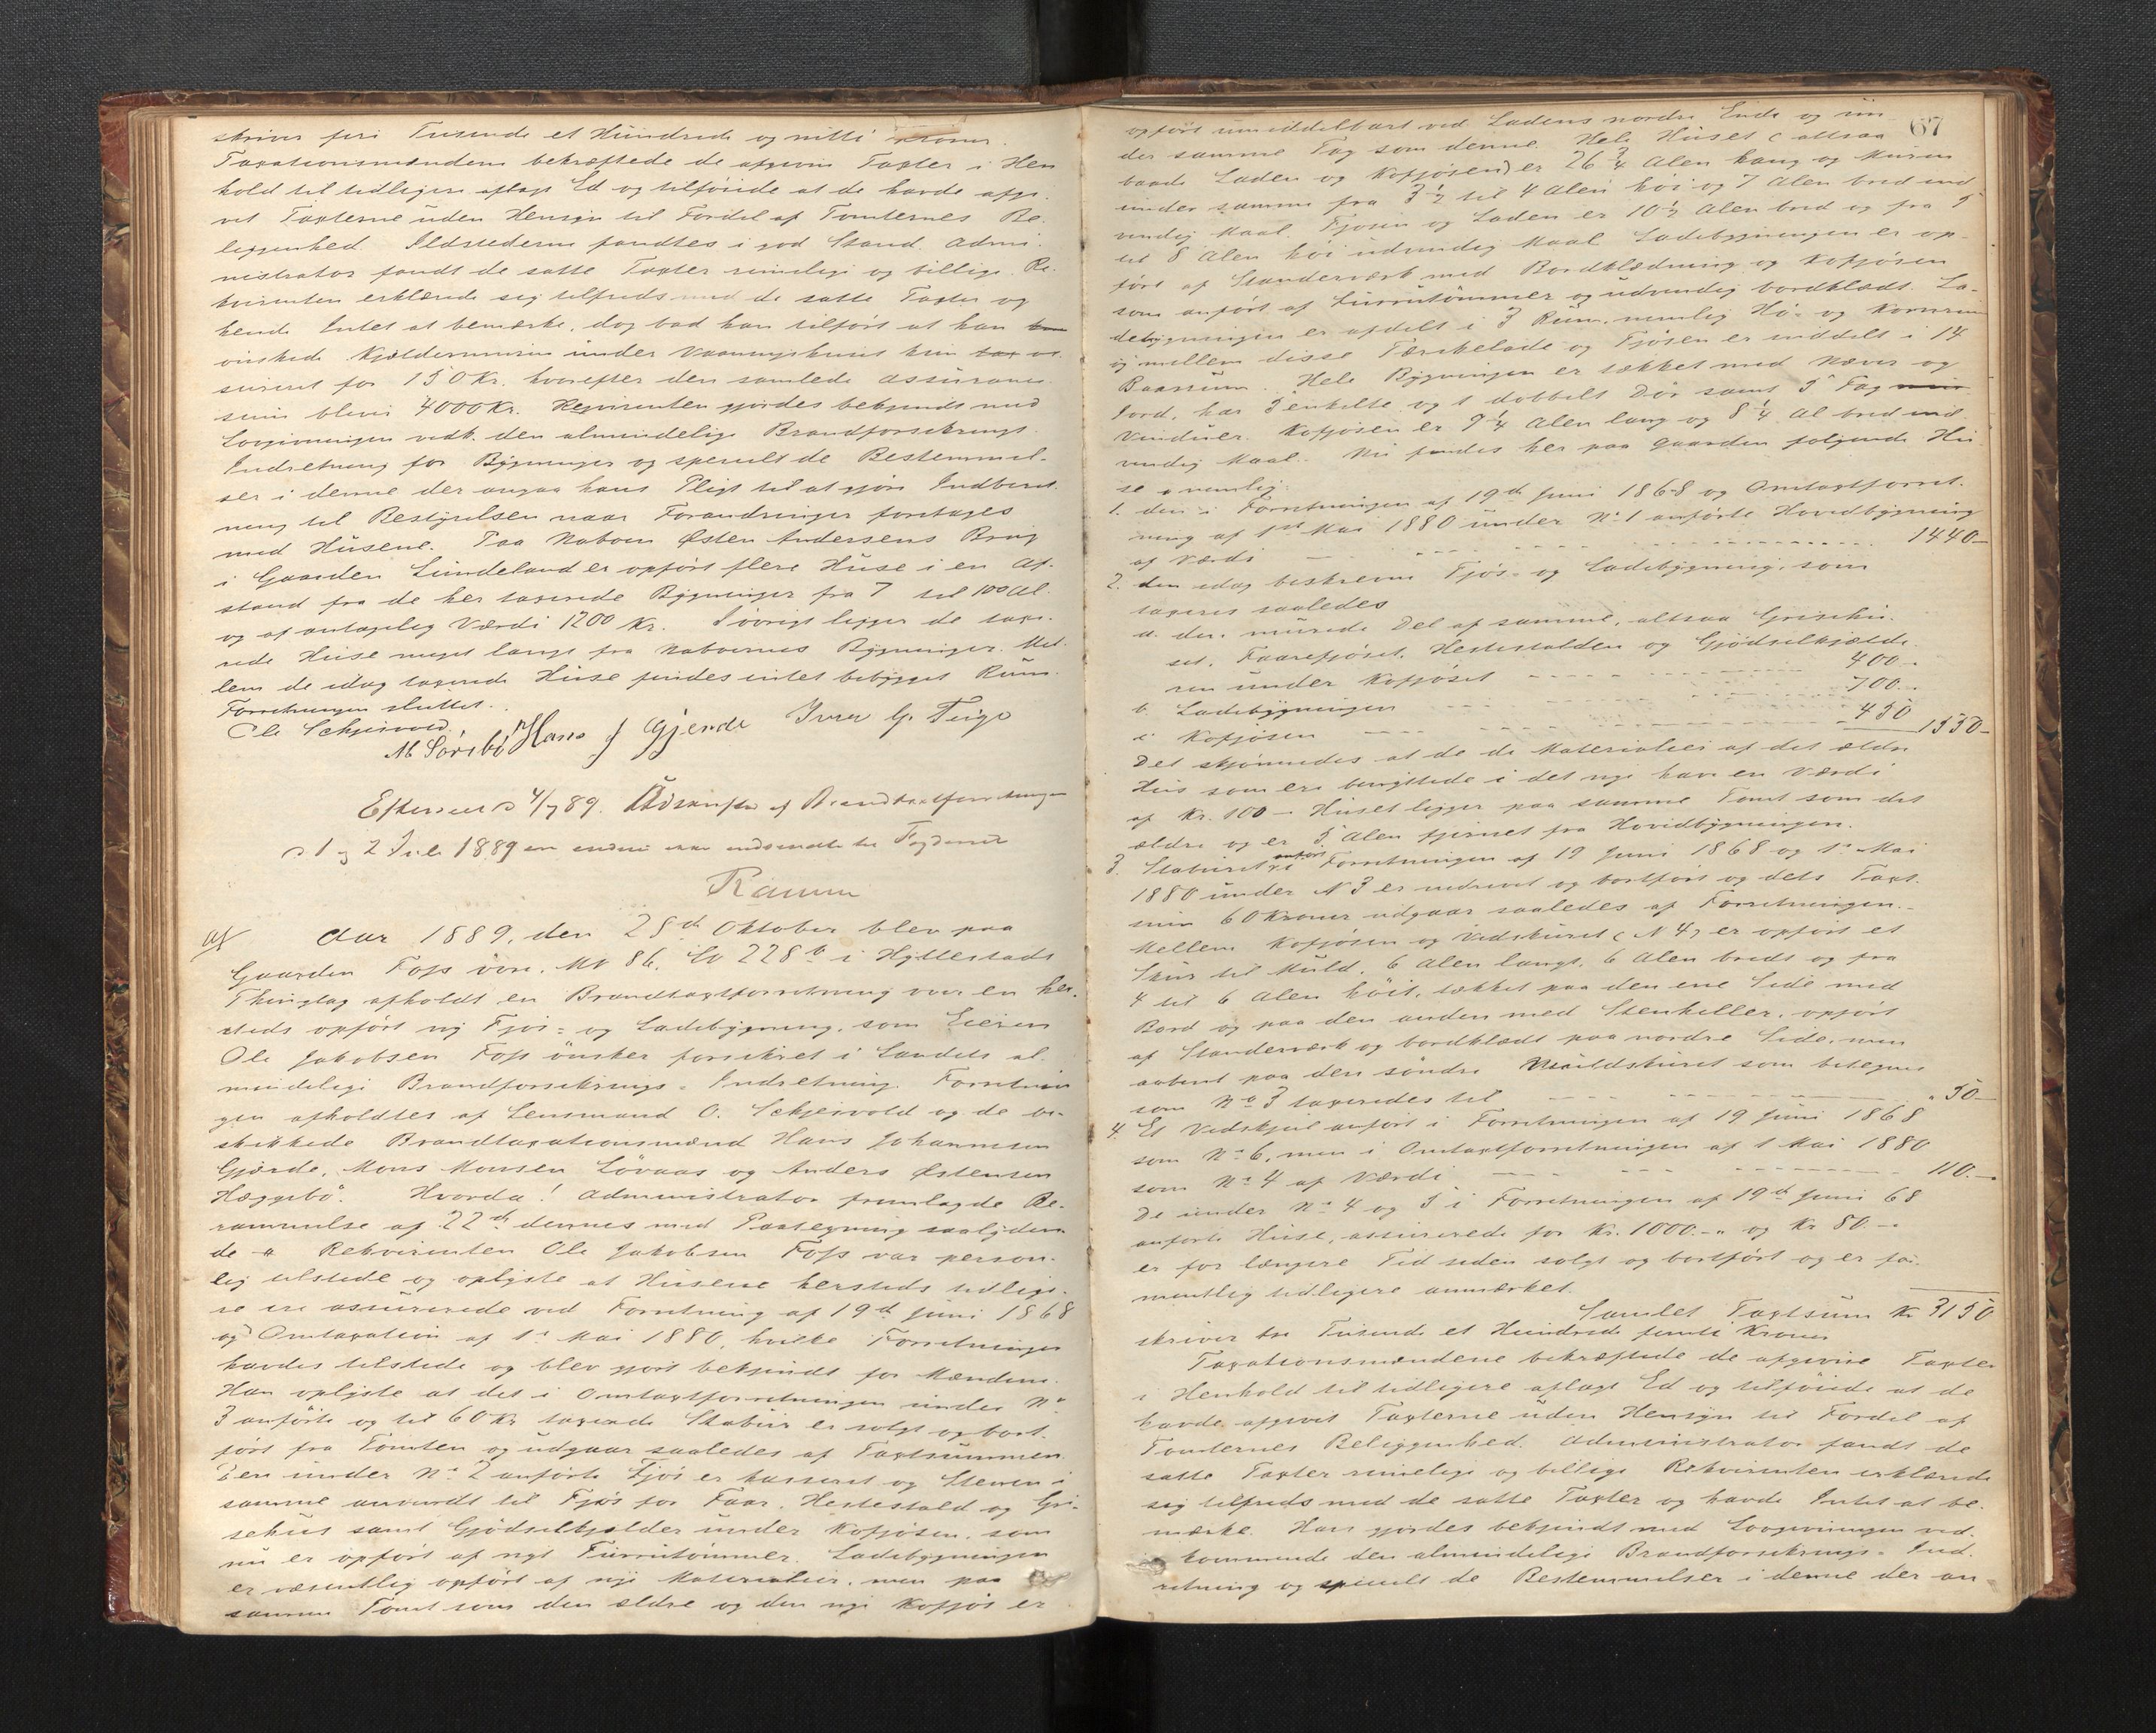 skriver fire Tusende et Hundrede og nitti Kroner.
Taxationsmændene bekræftede de afgivne Taxter i Hen
hold til tidligere aflagt Ed og tilføiede at de havde afgi.
vet Taxterne uden Hensyn til Fordel af Tomternes Be.
liggenhed. Ildstederne fandtes i god Stand. Admi.
nistrator fandt de satte Taxter rimelige og billige. Re.
kvirenten erklærede sig tilfreds med de satte Taxter og
havde Intet at bemærke, dog bad han tilført at han
ønskede Kjældermuren under Vaaningshuset kun as
sureret for 150 Kr. hvorefter den samlede Assurance
sum bliver 4000 Kr. Reqvirenten gjordes bekjendt med
Lovgivningen vedk. den almindelige Brandforsikrings
Indretning for Bygninger og specielt de Bestemmel-
ser i denne der angaa hans Pligt til at gjøre Indberet.
ning til Bestyrelsen naar Forandringer foretages
med Husene. Paa Naboen Østen Andersens Brug
i Gaarden Lundeland er opført flere Huse i en Af.
stand fra de her taxerede Bygninger fra 7 til 100 Al.
og af antagelig Værdi 1200 Kr. Iøvrigt ligger de taxe.
rede Huse meget langt fra Naboernes Bygninger. Mel.
lem de idag taxerede Huse findes intet bebygget Rum.
Forretningen sluttet.
Ole Schjeivold. M Sørebø Hans J Gjerde Iver G. Teige
Efterseet d 4/7 89. Udskrifter af Brandtaxtforretninger
d 1 og 2 Juli 1889 er endnu ikke indsendte til Fogderiet
Ramm
af Aar 1889, den 25de Oktober blev paa
Gaarden Foss øvre, MN 86, LN 228 b i Hyllestads
Thinglag afholdt en Brandtaxtforretning over en her.
steds opført ny Fjøs- og Ladebygning, som Eieren
Ole Jakobsen Foss ønsker forsikret i Landets al.
mindelige Brandforsikrings-Indretning. Forretnin
gen afholdtes af Lensmand O. Schjeivold og de be-
skikkede Brandtaxationsmænd Hans Johannesen
Gjerde, Mons Monsen Løvaas og Anders Østensen
Hæggebø. Hvorda! Administrator fremlagde Be-
rammelse af 22de dennes med Paategning saalyden
de " Rekvirenten Ole Jakobsen Foss var person-
lig tilstede og oplyste at Husene hersteds tidlige.
re ere assurerede ved Forretning af 19de Juni 1868
og Omtaxation af 1ste Mai 1880, hvilke Forretninger
havdes tilstede og blev gjort bekjendt for Mændene.
Han oplyste at det i Omtaxtforretningen under No
3 anførte og til 60 Kr taxerede Stabur er solgt og bort.
ført fra Tomten og udgaar saaledes af Taxtsummen.
Den under No 2 anførte Fjøs er kasseret og Stenen i
samme anvendt til Fjøs for Faar, Hestestald og Gri-
sehus samt Gjødselkjelder under Kofjøsen, som
nu er opført af nyt Furrutømmer. Ladebygningen
er væsentlig opført af nye Materialier, men paa
samme Tomt som den ældre og den nye Kofjøs er
67
opført umiddelbart ved Ladens nordre Ende og un
der samme Tag som denne. Hele Huset (altsaa
baade Laden og Kofjøsen) er 26 3/4 Alen lang og Muren
under samme fra 3 1/2 til 4 Alen høi og 7 Alen bred ind
vendig Maal. Fjøsen og Laden er 10 1/2 Alen bred og fra 5
til 8 Alen høi udvendig Maal. Ladebygningen er op-
ført af Standerværk med Bordklædning og Kofjøsen
som anført af Furrutømmer og udvendig bordklædt. La-
debygningen er afdelt i 3 Rum, nemlig Hø- og Kornrum
og mellem disse Tærskelade og Fjøsen er inddelt i 14
Baasrum. Hele Bygningen er tækket med Næver og
Jord, har 5 enkelte og 1 dobbelt Dør samt 5 Fag
Vinduer. Kofjøsen er 9 1/4 Alen lang og 8 1/4 Al bred ind
vendig Maal. Nu findes her paa Gaarden følgende Hu
se nemlig:
1. den i Forretningen af 19de Juni 1868 og Omtaxtforret.
ning af 1ste Mai 1880 under No 1 anførte Hovedbygning
af Værdi 1440-
2. den idag beskrevne Fjøs- og Ladebygning, som
taxeres saaledes
a. den murede Del af samme, altsaa Grisehu.
set, Faarefjøset, Hestestalden og Gjødselkjælde.
ren under Kofjøset 400-
b. Ladebygningen 700-
c. Kofjøsen 450 1550-
Det skjønnedes at de Materialier af det ældre
Hus som ere benyttede i det nye have en Værdi
af Kr. 100 - Huset ligger paa samme Tomt som det
ældre og er 5 Alen fjernet fra Hovedbygningen.
3. Staburet anført i Forretningen af 19 Juni 1868 og 1ste Mai
1880 under N 3 er nedrevet og bortført og dets Taxt.
sum 60 Kroner udgaar saaledes af Forretningen.-
Mellem Kofjøsen og Vedskuret (N 4) er opført et
Skur til Muld, 6 Alen langt, 6 Alen bredt og fra
4 til 6 Alen høit, tækket paa den ene Side med
Bord og paa den anden med Stenheller, opført
af Standerværk og bordklædt paa nordre Side, men
aabent paa den søndre. Muldskuret som betegnes
som No 3 taxeredes til 50-
4. Et Vedskjul anført i Forretningen af 19 Juni 1868
som No 6, men i Omtaxtforretningen af 1 Mai 1880
som No 4 af Værdi 110.-
De under No 4 og 5 i Forretningen af 19de Juni 68
anførte Huse, assurerede for Kr. 1000.- og Kr 80.-
er for længere Tid siden solgt og bortført og er for.
mentlig tidligere anmærket.
Samlet Taxtsum Kr 3150
skriver tre Tusende et Hundrede femti Kroner
Taxationsmændene bekræftede de afgivne Taxter
i Henhold til tidligere aflagt Ed og tilføiede at de
havde afgivet Taxterne uden Hensyn til Fordel af
Tomternes Beliggenhed. Administrator fandt de
satte Taxter rimelige og billige Rekvirenten erklærede
sig tilfreds med de satte Taxter og havde Intet at be.
mærke. Han gjordes bekjendt med Lovgivningen ved.
kommende den almindelige Brandforsikrings-Ind.
retning og specielt de Bestemmelser i denne der an